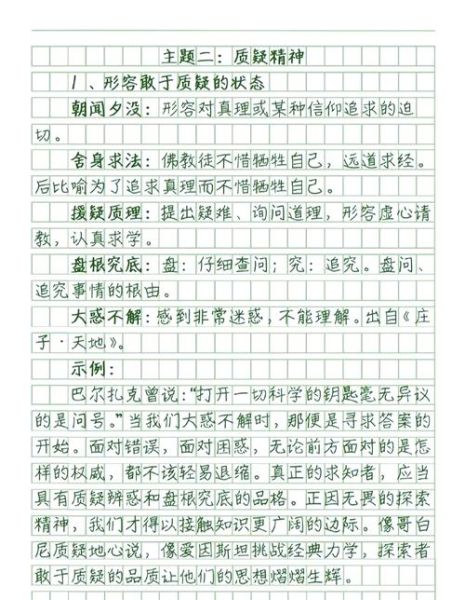 主题二：质疑精神
1、形容敢于质疑的状态
朝闻夕没：形容对真理或某种信仰追求的迫
切。
舍身求法：佛教徒不惜牺牲自己，远道求经。
后比喻为了追求真理而不惜牺牲自己。
援疑质理：提出疑难、询问道理，形容虚心请
教，认真求学。
盘根究底：盘：仔细查问；究：追究。盘问、
追究事情的根由。
大惑不解：感到非常迷惑，不能理解。出自《庄
子·天地》。
示例：
巴尔扎克曾说：“打开一切科学的钥匙毫无异议
的是问号。”当我们大惑不解时，那便是寻求答案的
开始。面对错误，面对困惑，无论前方面对的是怎
样的权威，都不该轻易退缩。真正的求知者，应当
具有质疑辨惑和盘根究底的品格。正因无畏的探索
精神，我们才得以接触知识更广阔的边际。像哥白
尼质疑地心说，像爱因斯坦挑战经典力学，探索者
敢于质疑的品质让他们的思想熠熠生辉。